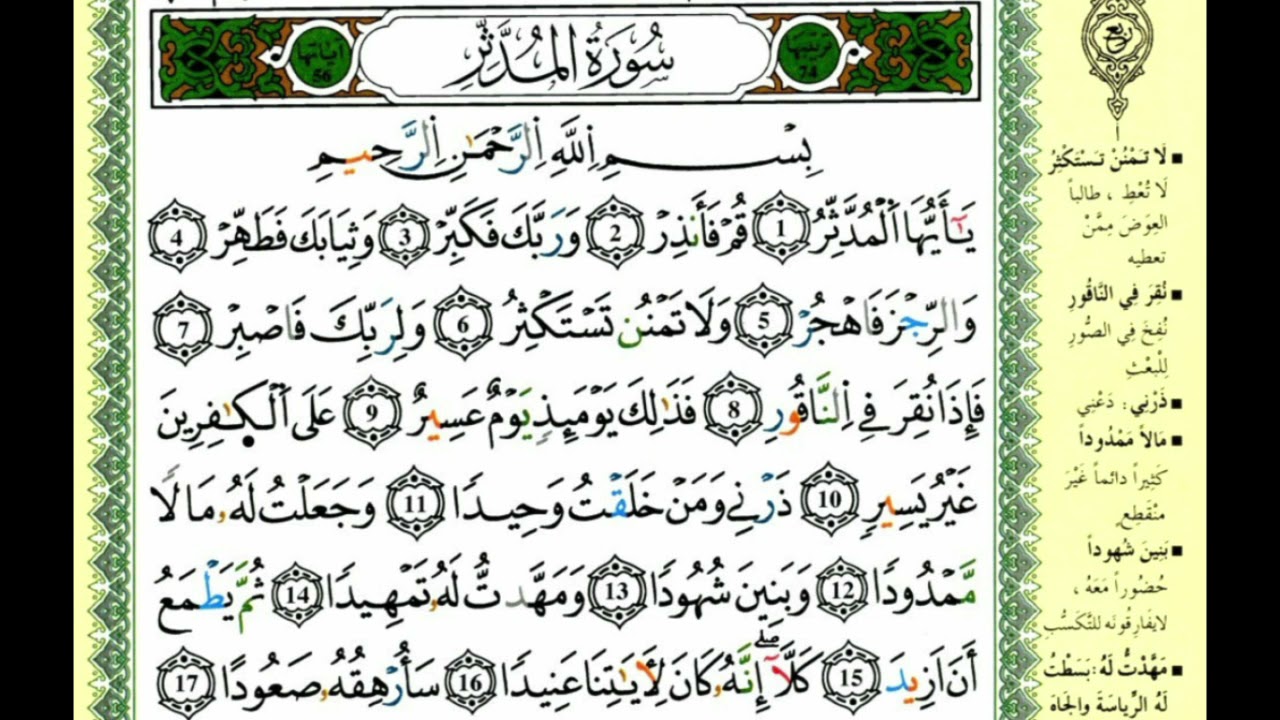 ترتيبها 74
سُورَةُ المُدَّثِّرِ
اياتها 56
بِسْمِ اِ۬للَّهِ اِ۬لرَّحْمَٰنِ اِ۬لرَّحِيمِ
يَٰٓأَيُّهَا اَ۬لْمُدَّثِّرُ 1 قُمْ فَأَنذِرْ 2 وَرَبَّكَ فَكَبِّرْ 3 وَثِيَابَكَ فَطَهِّرْ 4
وَالرِّجْزَ فَاهْجُرْ 5 وَلَا تَمْنُن تَسْتَكْثِرُ 6 وَلِرَبِّكَ فَاصْبِرْ 7
فَإِذَا نُقِرَ فِے اِ۬لنَّاقُورِ 8 فَذَٰلِكَ يَوْمَئِذٖ يَوْمٌ عَسِيرٌ 9 عَلَى اَ۬لْكٰ۪فِرِينَ
غَيْرُ يَسِيرٖ 10 ذَرْنِے وَمَنْ خَلَقْتُ وَحِيدٗا 11 وَجَعَلْتُ لَهُۥ مَالٗا
مَّمْدُودٗا 12 وَبَنِينَ شُهُودٗا 13 وَمَهَّدتُّ لَهُۥ تَمْهِيدٗا 14 ثُمَّ يَطْمَعُ
أَنْ أَزِيدَ 15 كَلَّآۖ إِنَّهُۥ كَانَ لِأٓيَٰتِنَا عَنِيدٗا 16 سَأُرْهِقُهُۥ صَعُودًا 17
ربع
■ لَا تَمْنُنْ تَسْتَكْثِرُ
لَا تُعْطِ ، طالباً
العِوَضَ مِمَّنْ
تعطيه
■ نُقِرَ فِي النَّاقُورِ
نُفِخَ فِي الصُّورِ
لِلْبَعْثِ
■ ذَرْنِي: دَعْنِي
■ مَالاً مَمْدُوداً
كَثِيراً دائماً غَيْرَ
مُنْقَطِعٍ
■ بَنِينَ شُهُوداً
حُضُوراً مَعَهُ ،
لا يفَارِقُونَه للتَّكَسُّبِ
■ مَهَّدْتُ لَهُ: بَسَطْتُ
لَهُ الرِّيَاسَةَ والجَاهَ